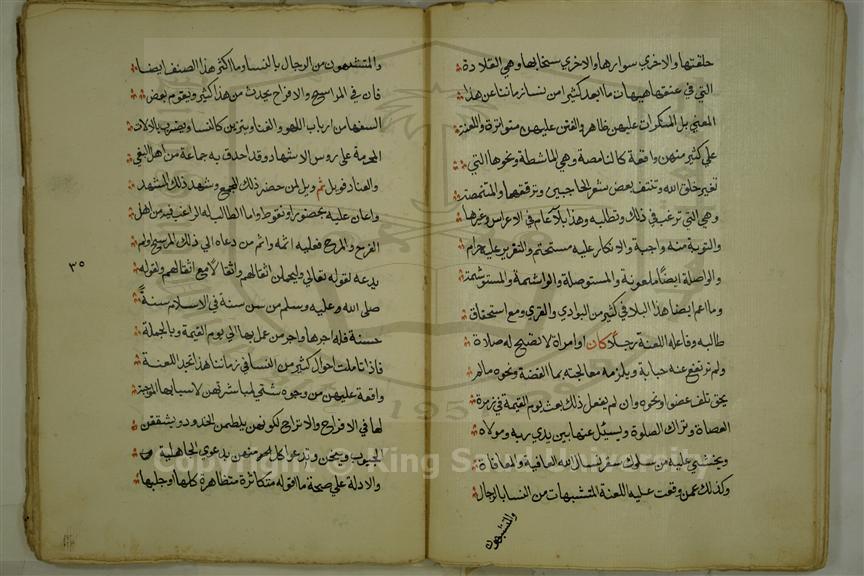 حلقتها والاخري سوارها والاخري سخابها وهي القلادة
التي في عنقها هيهات ما ابعد كثيرا من نساء زماننا عن هذا
المعني بل المنكرات عليهن ظاهرة والفتن عليهن متواترة واللعنة
علي كثير منهن واقعة كالنامصة وهي الماشطة ونحوها التي
تغير خلق الله وتنتف بعض شعر الحاجبين وترققهما والمتنمصة
وهي التي ترغب في ذلك وتطلبه وهذا بلاء عام في الاعراس وغيرها
والتوبة منه واجبة والانكار عليه مستحتم والتقرير عليه حرام
والواصلة ايضا ملعونة والمستوصلة والواشمة والمستوشمة
وما اعم ايضا هذا البلا في كثير من البوادي والقري ومع استحقاق
طالبه وفاعله اللعنة رجلا كان او امراة لا تصح له صلاة
ولم ترتفع عنه جنابة ويلزمه معالجته بما الفضة ونحوه مالم
يخف تلف عضو او نحوه وان لم يفعل ذلك بعث يوم القيمة في زمرة
العصاة وتراك الصلوة ويسئل عنها بين يدي ربه ومولاه
ويخشي عليه من سلوك سقر نسال الله العافية والمعافاة
وكذلك ممن وقعت عليه اللعنة المتشبهات من النسا بالرجال
والمتشبهون
والمتشبهون من الرجال بالنسا وما اكثر هذا الصنف ايضا
فان في المراسيح والافراح يحدث من هذا كثير ويقوم بعض
السفها من ارباب اللهو والغنا ويتزين كالنسا ويضرب بالالات
المحرمة علي روس الاشهاد وقد احدق به جماعة من اهل البغي
والعناد فويل ثم ويل لمن حضر ذلك المجمع وشهد ذلك المشهد
واعان عليه بحضور او نقوط واما الطالب له الراغب فيه من اهل
الفرح والمرح فعليه اثمه واثم من دعاه الي ذلك المرسح اولم
يدعه لقوله تعالي وليحملن اثقالهم واثقالا مع اثقالهم ولقوله
صلي الله عليه وسلم من سن سنة في الاسلام سنةً
حسنة فله اجرها واجر من عمل بها الي يوم القيمة وبالجملة
فاذا تاملت احوال كثير من النسا في زماننا هذا تجد اللعنة
واقعة عليهن من وجوه شتي لمباشرتهن لاسبابها الموجبة
لها في الافراح والاتراح لكونهن يلطمن الخدود ويشققن
الجيوب وينحن وتدعو اكثرهن بدعوي الجاهلية
والادلة علي صحة ما اقوله متكاثرة متظاهرة كلها وجلبها
٣٥
Copyright © King Saud University
195